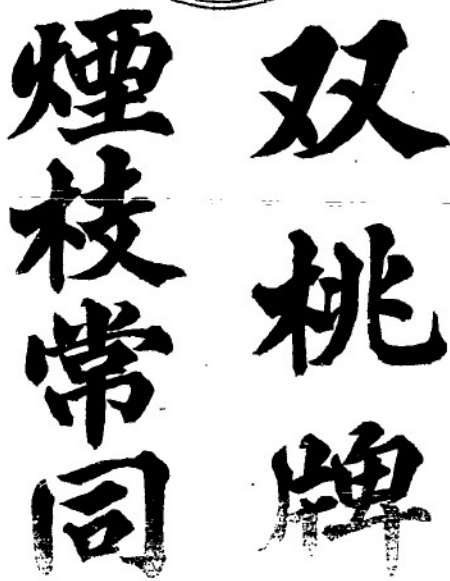 双桃牌
煙枝常同